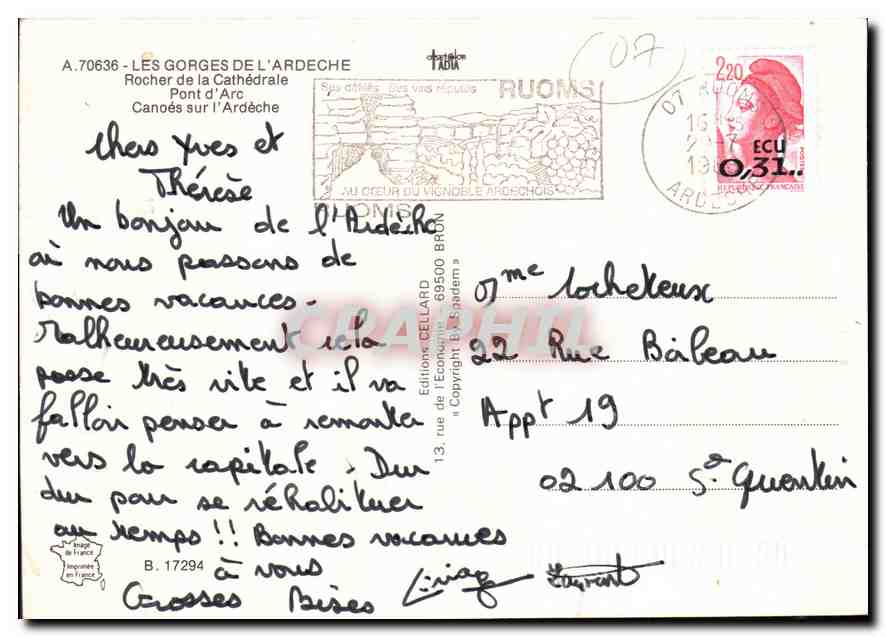 A.70636 - LES GORGES DE L'ARDECHE
Rocher de la Cathédrale
Pont d'Arc
Canoés sur l'Ardèche
Chers Yves et
Thérèse
Un bonjour de l'Ardèche
où nous passons de
bonnes vacances.
Malheureusement cela
passe très vite et il va
falloir penser à remonter
vers la capitale. Dur
dur pour se réhabituer
au temps!! Bonnes vacances
à vous
Grosses Bises
Laurent
Image
de France
Imprimée
en France
B. 17294
Editions CELLARD
13, rue de l'Economie 69500 BRON
« Copyright By Spadem »
RUOMS
Ses défilés Ses vins réputés
AU CŒUR DU VIGNOBLE ARDECHOIS
RUOMS
07
07 RUOMS
16
ARDECHE
2,20
ECU
0,31..
POSTES
REPUBLIQUE FRANÇAISE
CPAPHIL
Mme Cocheteux
22 Rue Bâbeau
Appt 19
02100 St Quentin